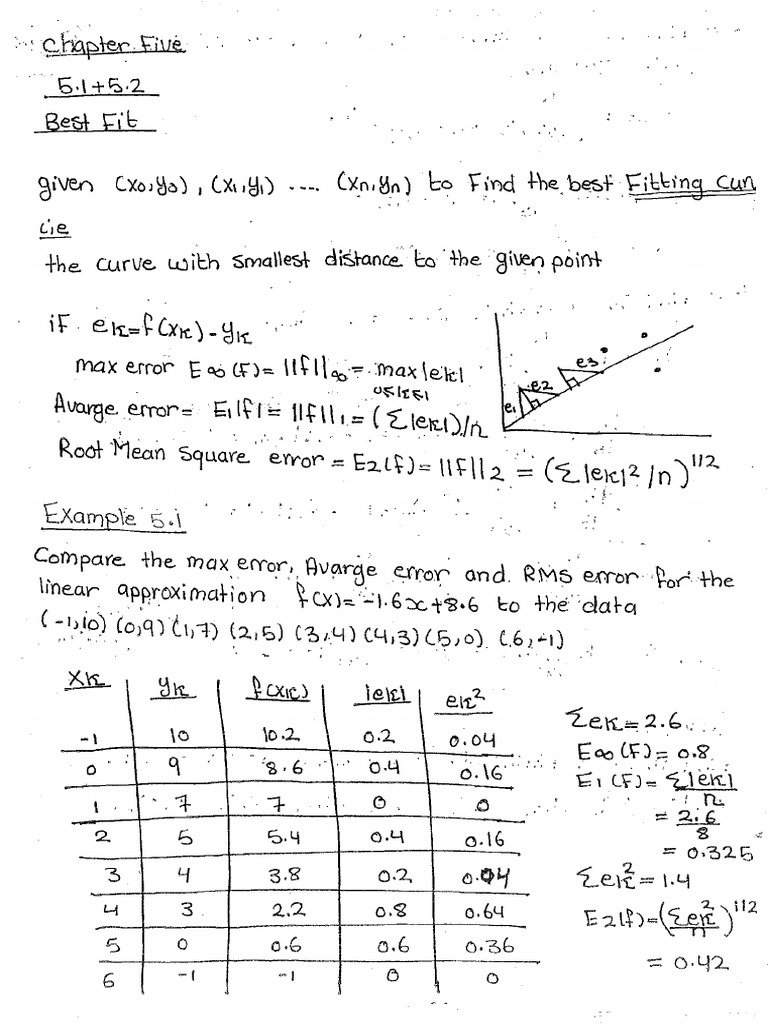 Chapter Five
5.1+5.2
Best Fit
given (x0,y0), (x1,y1) .... (xn,yn) to Find the best Fitting Cur
ie
the curve with smallest distance to the given point
if ek=f(xk)-yk
max error E∞(F)=||f||∞=max|ek|
0≤k≤1
Avarge error= E1|f|=||f||1=(Σ|ek|)/n
Root Mean Square error=E2(f)=||f||2=(Σ|ek|²/n)^1/2
e1 e2 e3
Example 5.1
Compare the max error, Avarge error and RMS error for the
linear approximation f(x)=-1.6x+8.6 to the data
(-1,10) (0,9) (1,7) (2,5) (3,4) (4,3) (5,0) (6,-1)
xk yk f(xk) |ek| ek²
-1 10 10.2 0.2 0.04
0 9 8.6 0.4 0.16
1 7 7 0 0
2 5 5.4 0.4 0.16
3 4 3.8 0.2 0.04
4 3 2.2 0.8 0.64
5 0 0.6 0.6 0.36
6 -1 -1 0 0
Σek=2.6
E∞(F)=0.8
E1(F)=Σ|ek|/n
=2.6/8
=0.325
Σek²=1.4
E2(f)=(Σek²/n)^1/2
=0.42